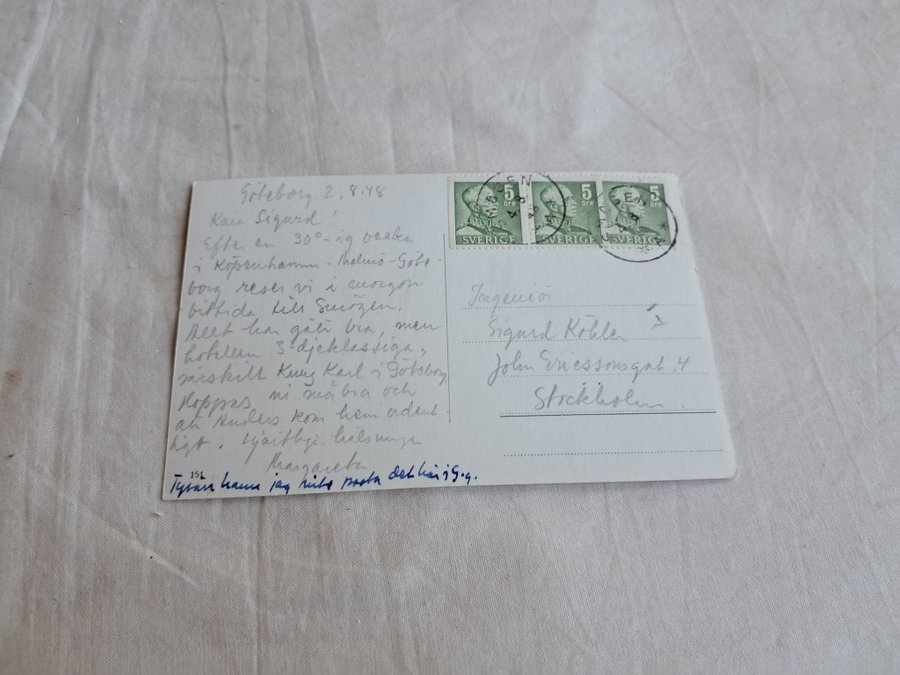 Göteborg 2.8.48
Käre Sigurd!
Efter en 30°-ig vecka
i Köpenhamn-Malmö-Göte-
borg reser vi i morgon
bittida till Smögen.
Allt har gått bra, men
hotellen 3-djeklassiga,
särskilt Kung Karl i Göteborg
Hoppas ni må bra och
att Anders kom hem ordent
ligt. Hjärtliga hälsningar
Margareta
151
Tyvärr hann jag inte posta det här i G-g.
5 öre
SVERIGE
5 öre
SVERIGE
5 öre
SVERIGE
Ingeniör
Sigurd Köhler
John Ericssonsgat. 4
Stockholm